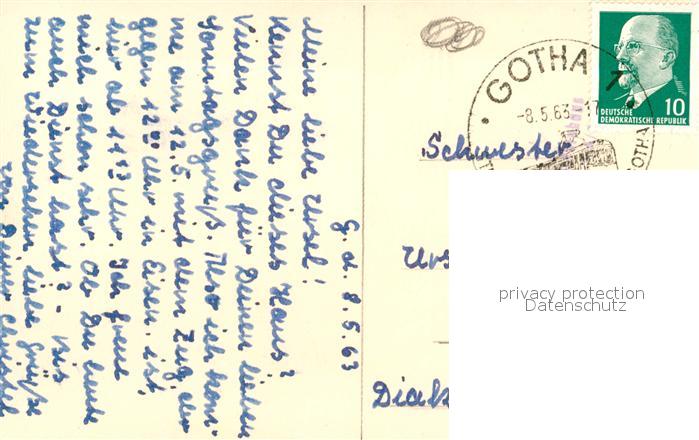 G. d. 8.5.63
Meine liebe Ursel!
Kennst Du dieses Haus?
Vielen Dank für Deinen lieben
Sonntagsgruß. Also ich kom-
me am 12.5. mit dem Zug, der
gegen 12 00 Uhr in Eisen. ist,
für ab 11 23 Uhr. Ich freue
mich schon sehr. Ob Du heute
auch Dienst hast? - Bis
zum Wiedersehen liebe Grüße
von Deiner
GOTHA
-8.5.63-17
GOTHA
10
DEUTSCHE
DEMOKRATISCHE REPUBLIK
Schwester
Urs
Diak
privacy protection
Datenschutz